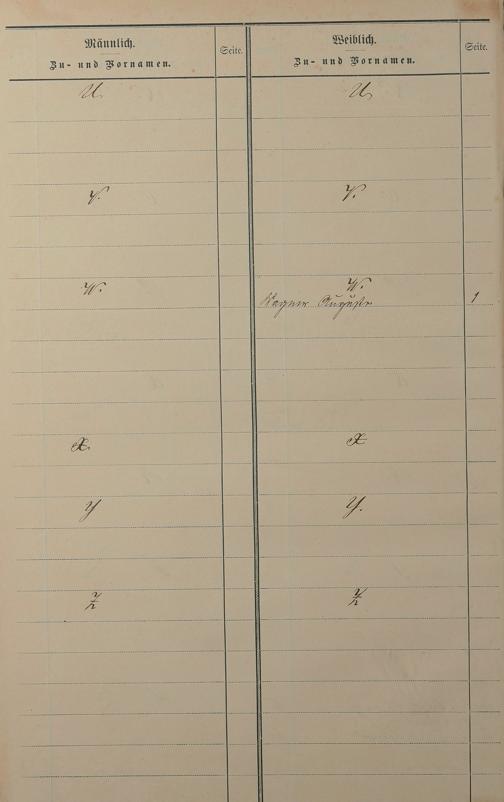 Männlich.
Zu- und Vornamen.
Seite.
Weiblich.
Zu- und Vornamen.
Seite.
U. U.
V. V.
W. W.
Wagner Auguste 1
X. X
Y Y.
Z Z